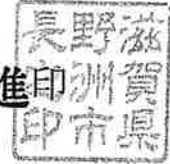 印
滋賀県
野洲市
長印